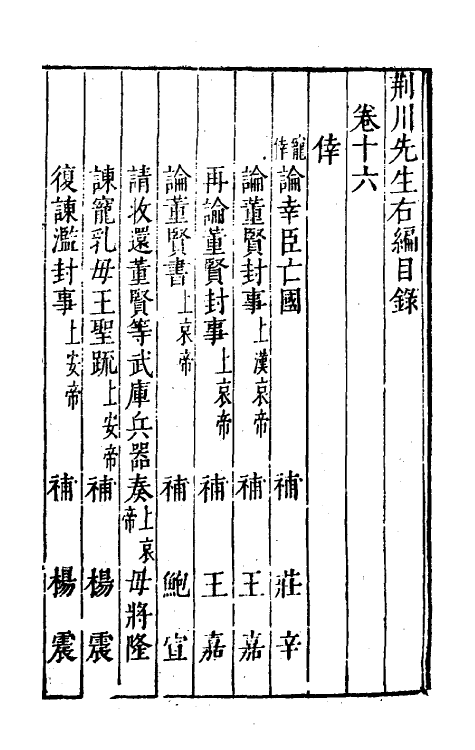 荆川先生右編目錄
卷十六
倖
寵倖論幸臣亡國 補 莊辛
論董賢封事上漢哀帝 補 王嘉
再論董賢封事上哀帝 補 王嘉
論董賢書上哀帝 補 鮑宣
請收還董賢等武庫兵器奏上哀帝 毋將隆
諫寵乳母王聖䟽上安帝 補 楊震
復諫濫封事上安帝 補 楊震